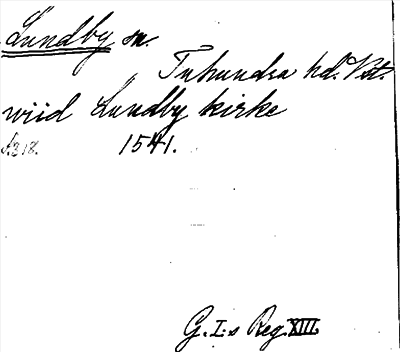 Lundby sn.
Tuhundra hd. Vstm.
wiid Lundby kirke
1541.
G. I:s Reg. XIII.